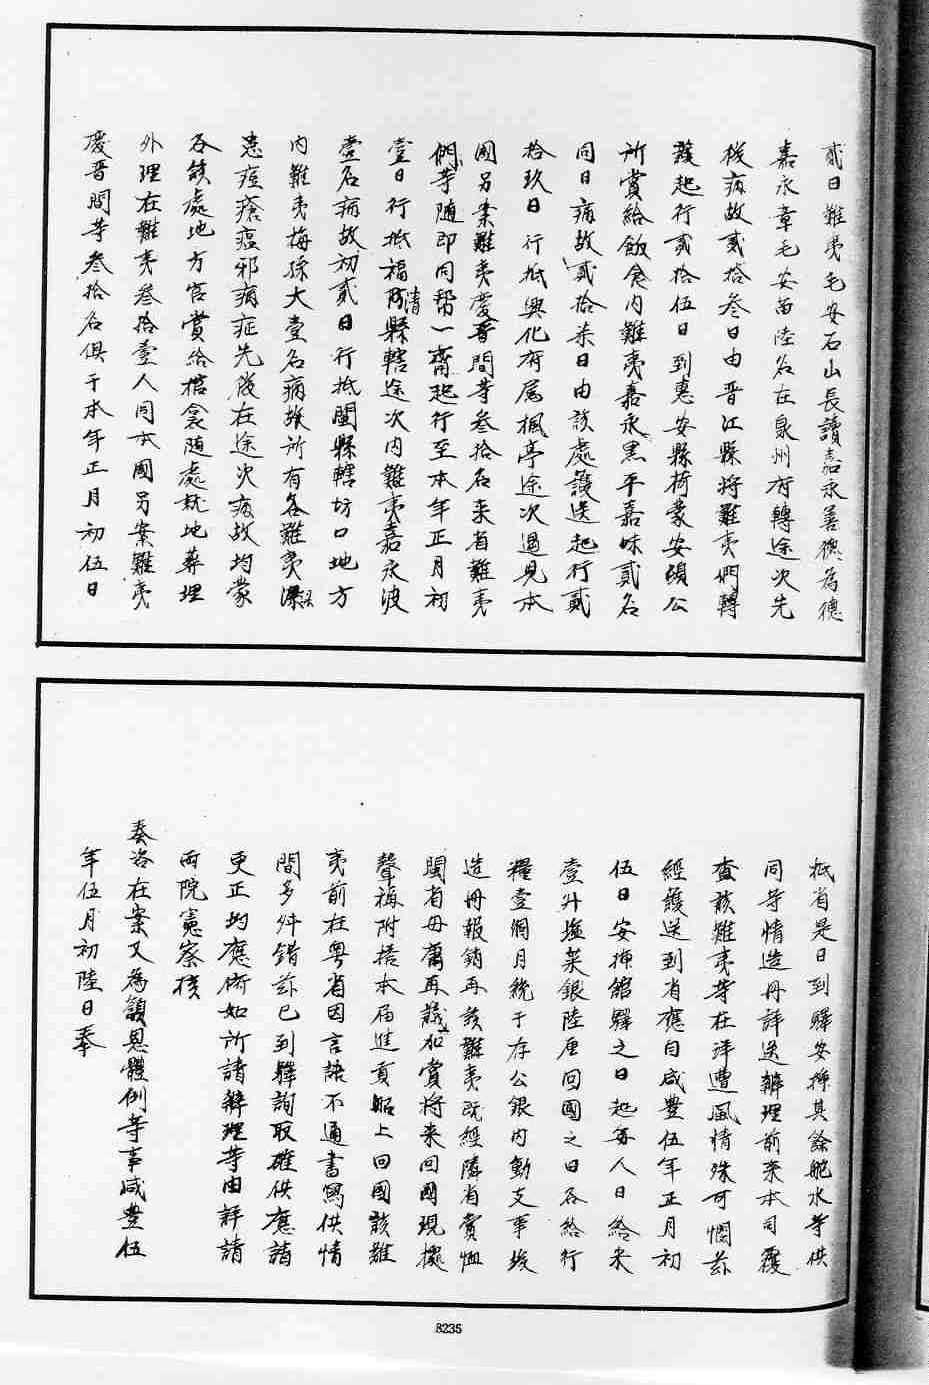 貳日難夷毛安石山長讀嘉永善德為德
嘉永章毛安苗陸名在泉州府轉途次先
後病故貳拾叁日由晋江縣將難夷們轉
護起行貳拾伍日到惠安縣荷蒙安頓公
所賞給飯食內難夷嘉永黑平嘉味貳名
同日病故貳拾柒日由該處護送起行貳
拾玖日行抵興化府属楓亭途次遇見本
國另案難夷慶晋問等叁拾名来省難夷
們等随即同幇一齊起行至本年正月初
壹日行抵福清縣轄途次內難夷嘉永波
壹名病故初貳日行抵閩縣轄坊口地方
內難夷梅孫大壹名病故所有各難夷
患痘瘡瘟邪病症先後在途次病故均蒙
各該處地方官賞給棺衾随處就地葬埋
外理在難夷叁拾壹人同本國另案難夷
慶晋問等叁拾名俱于本年正月初伍日
抵省是日到驛安揷其餘舵水等供
同等情造册詳送辦理前来本司覆
查該難夷等在洋遭風情殊可憫茲
經護送到省應自咸豊伍年正月初
伍日安揷館驛之日起每人日給米
壹升塩菜銀陸厘回國之日各給行
糧壹個月統于存公銀內動支事竣
造册報銷再該難夷既經隣省賞恤
閩省毋庸再議加賞將来回國現擬
聲稱附搭本届進貢船上回國該難
夷前在粤省因言語不通書寫供情
間多舛錯茲已到驛詢取確供應請
更正均應俯如所請辦理等由詳請
兩院憲察核
奏洛在案又為籲恩體例等事咸豊伍
年伍月初陸日奉
8235